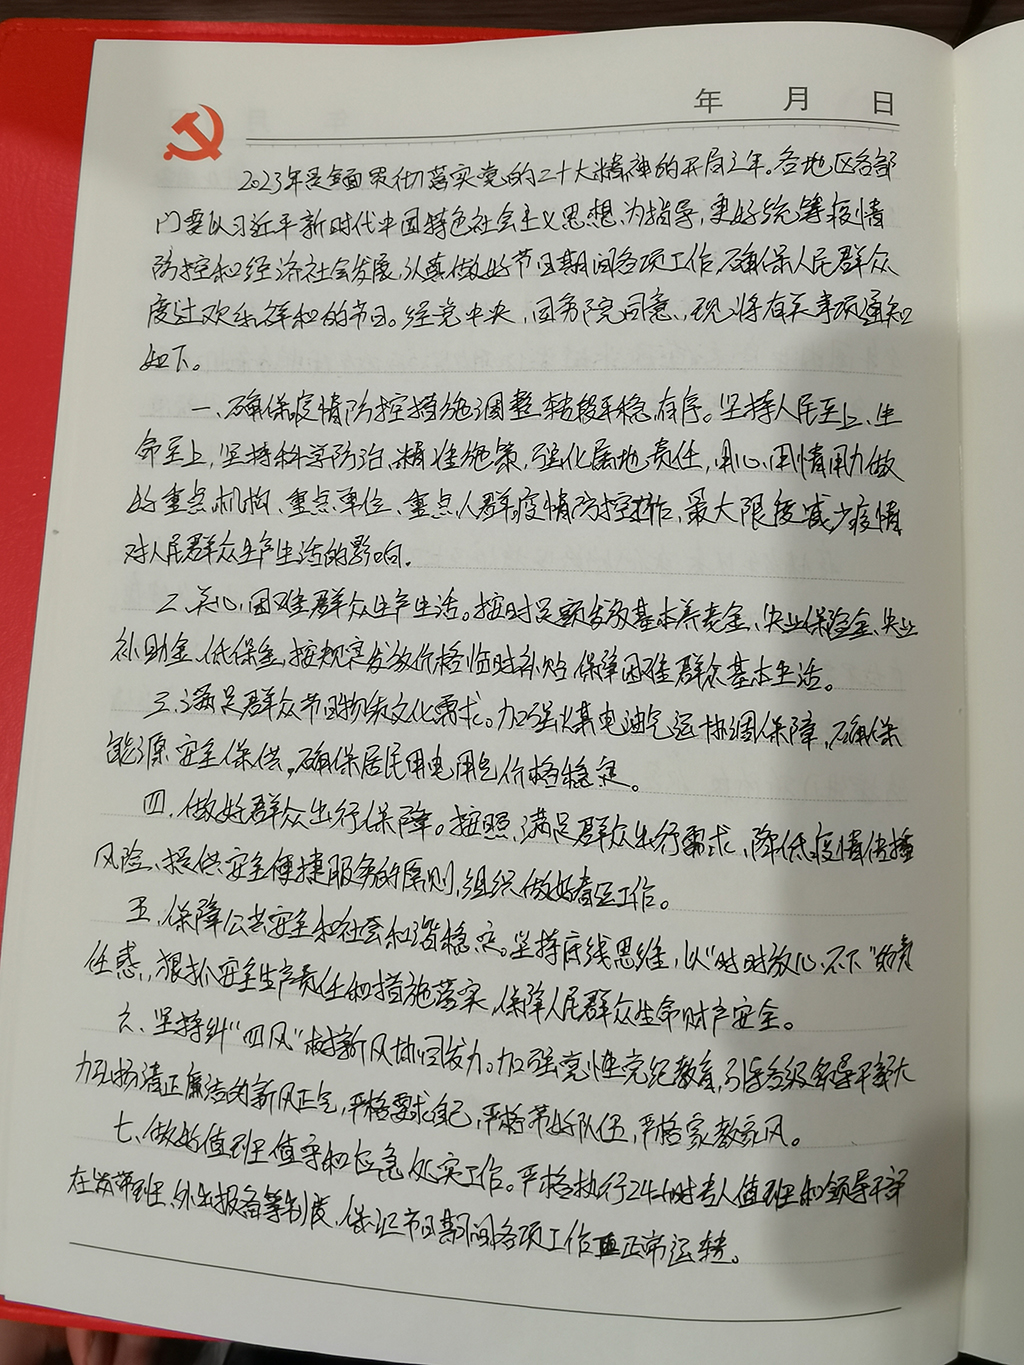 年 月 日
2023年是全面贯彻落实党的二十大精神的开局之年。各地区各部
门要以习近平新时代中国特色社会主义思想为指导，更好统筹疫情
防控和经济社会发展，认真做好节日期间各项工作，确保人民群众
度过欢乐祥和的节日。经党中央，国务院同意，现将有关事项通知
如下。
一、确保疫情防控措施调整转段平稳有序。坚持人民至上、生
命至上，坚持科学防治、精准施策，强化属地责任，用心、用情用力做
好重点机构、重点单位、重点人群疫情防控工作，最大限度减少疫情
对人民群众生产生活的影响.
二、关心困难群众生产生活。按时足额发放基本养老金、失业保险金、失业
补助金、低保金，按规定发放价格临时补贴，保障困难群众基本生活。
三、满足群众节日物质文化需求。加强煤电油气运协调保障，确保
能源安全保供。确保居民用电用气价格稳定。
四、做好群众出行保障。按照满足群众出行需求、降低疫情传播
风险、提供安全便捷服务的原则，组织做好春运工作。
五、保障公共安全和社会和谐稳定。坚持底线思维，以“时时放心不下”的责
任感，狠抓安全生产责任和措施落实，保障人民群众生命财产安全。
六、坚持纠“四风”树新风协同发力。加强党性党纪教育，引导各级领导干部大
力弘扬清正廉洁的新风正气，严格要求自己，严格带好队伍，严格家教家风。
七、做好值班值守和应急处突工作。严格执行24小时专人值班和领导干部
在岗带班、外出报备等制度，保证节日期间各项工作正常运转。